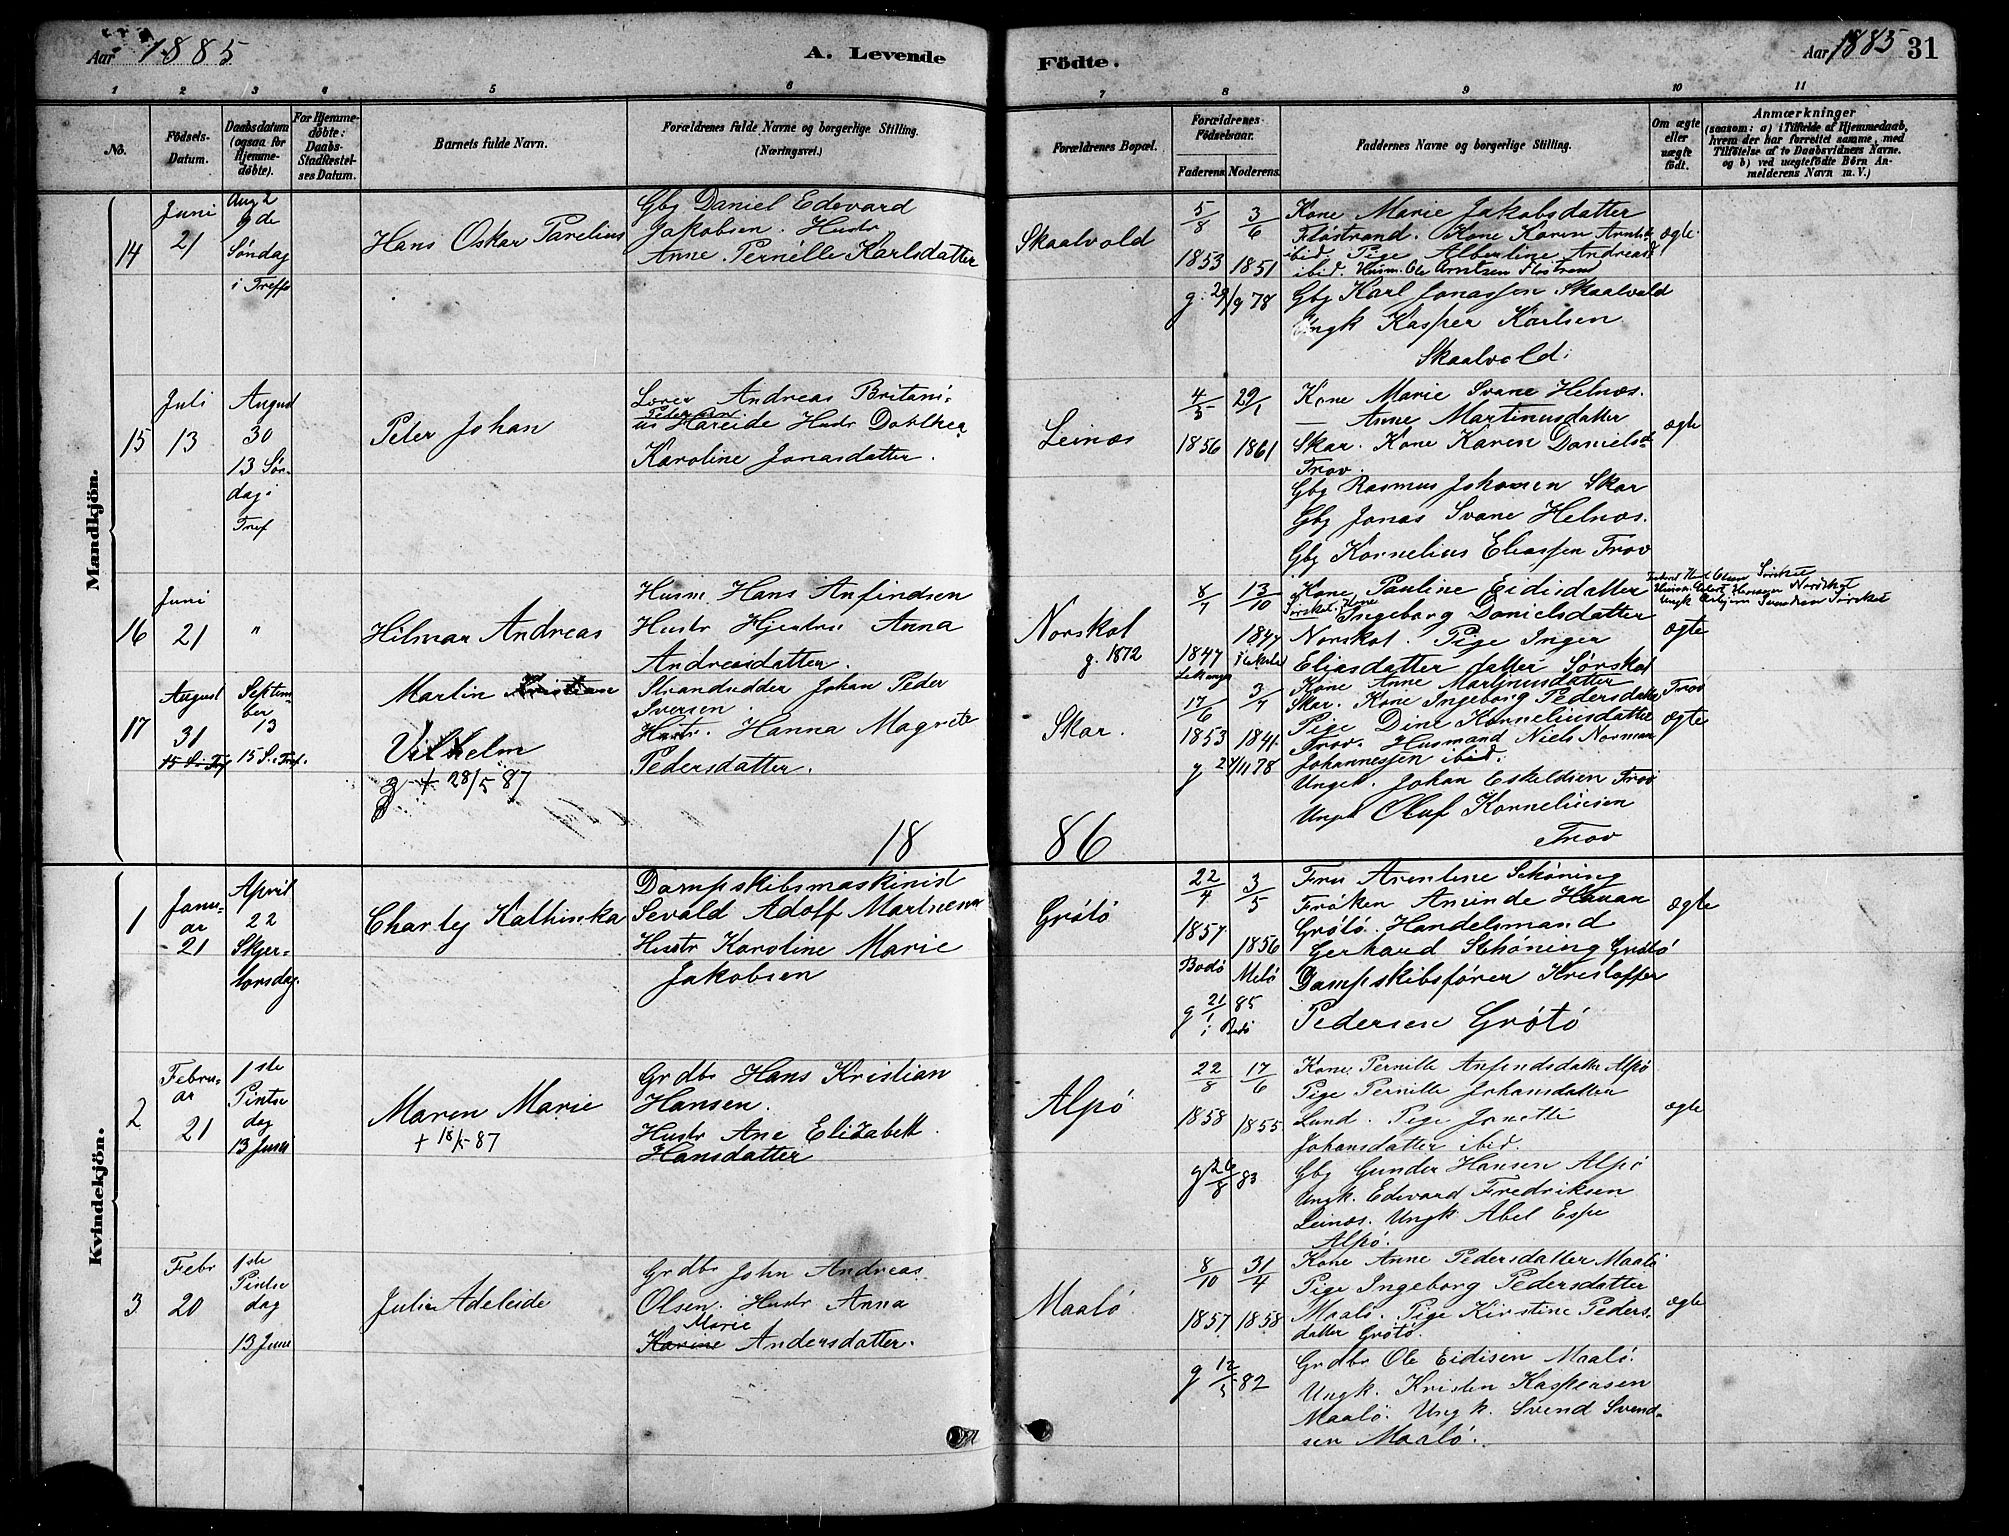 Aar 1885
A. Levende
Fødte.
Aar 1885
31
1 2 3 4 5 6 7 8 9 10 11
No.
Fødsels-
Datum.
Daabsdatum
(ogsaa for
Hjemme-
døbte).
For Hjemme-
døbte:
Daabs-
Stadfæstel-
ses Datum.
Barnets fulde Navn.
Forældrenes fulde Navne og borgerlige Stilling.
(Næringsvei.)
Forældrenes Bopæl.
Forældrenes
Fødselsaar.
Faderens. Moderens.
Faddernes Navne og borgerlige Stilling.
Om ægte
eller
uægte
født.
Anmærkninger
(saasom: a) i Tilfælde af Hjemmedaab,
hvem der har forrettet samme, med
Tilføielse af to Daabsvidners Navne.
og b) ved uægtefødte Børn An-
melderens Navn m. V.)
Mandkjön.
14
Juni
21
Aug 2
9de
Søndag
i Treff
Hans Oskar Parelius
Gbg Daniel Edevard
Jakobsen. Hustr
Anne Pernelle Karlsdatter
Skaalvold
5/8 3/6
1853 1851
g. 29/9 78
Kone Marie Jakobsdatter
Flostrand. Kone Karen Arnts
ibid. Pige Albertine Andreasd
ibid. Husm. Ole Arntsen Flostrand
Gbg Karl Jonassen Skaalvold
Ungk Kasper Karlsen
Skaalvold.
ægte
15
Juli
13
August
30
13 Søn-
dag i
Tref
Peter Johan
Andreas Britani-
Petersen
us Hareide Hustr Dorthea
Karoline Jonasdatter.
Leinæs
4/5 29/1
1856 1861
Kone Marie Svane Helnæs.
— Anne Martinusdatter
Skar. Kone Karen Daniels
Trov.
Gbg Rasmus Johansen Skar
Gbg Jonas Svane Helnæs.
Gbg Kornelius Eliassen Trov
ægte
16
Juni
21
"
Hilmar Andreas
Husm. Hans Anfindsen
Hustr Hjertru Anna
Andreasdatter.
Norskot
g. 1872
8/7 13/10
1847 1847
Kone Pauline Eidisdatter
Sørskot. Kone
Ingeborg Danielsdatter
Norskot. Pige Inger
Eliasdatter datter Sørskot
ægte
Olsen Sørskot
Hansen Norskot
Ungk Sørskot
17
August
31
15 S. Tref
Septem-
ber
13
15 S. i Tref.
Martin Kristian
Vilhelm
+ 28/5 87
Strandsidder Johan Peder
Iversen.
Hustr. Hanna Magrete
Pedersdatter.
Skar.
17/6 3/7
1853 1841.
g 24/11 78
Kone Anne Martinusdatter
Skar. Kone Ingeborg Pedersdatter Trov
Pige Dine Korneliusdatter
Trov. Husmand Niels Norman
Johannessen ibid.
Ungk. Johan Eskildsen Trov
Ungk Oluf Korneliusen
Trov
ægte
18 86
Kvindekjön.
1
Janu-
ar
21
April
22
Skjer-
torsdag.
Charley Kathinka
Dampskibsmaskinist
Sevald Adolf Martinesen
Hustr Karoline Marie
Jakobsen
Grøtø
22/4 3/5
1857 1856
Bodø Melø
g 21/1 85
i Bodø
Fru Arentine Schøning
Frøken Aminde Havan
Grøtø. Handelsmand
Gerhard Schøning Grøtø
Dampskibsfører Kristoffer
Pedersen Grøtø
ægte
2
Febru-
ar
21
1ste
Pintse
dag
13 Juni
Maren Marie
+ 18/5 87
Grdbr Hans Kristian
Hansen.
Hustr Ane Elizabett
Hansdatter
Alpø
22/8 17/6
1858 1855
g 26/8 83
Kone Pernille Anfindsdatter Alpø
Pige Pernille Johansdatter
Lund. Pige Janette
Johansdatter ibid.
Gbg Gunder Hansen Alpø
Ungk. Edevard Fredriksen
Leinæs. Ungk Abel Espe
Alpø.
ægte
3
Febr
20
1ste
Pintse
dag
13 Juni
Julie Adeleide
Grdbr John Andreas
Olsen. Hustr Anna
Marie
Karine Andersdatter.
Maalø
8/10 31/4
1857 1858
g 12/5 82
Kone Anne Pedersdatter Maalø
Pige Ingeborg Pedersdatter
Maalø. Pige Kirstine Peders-
datter Grøtø.
Grdbr Ole Eidisen Maalø.
Ungk. Kristen Kaspersen
Maalø. Ungk. Svend Svend-
sen Maalø.
ægte